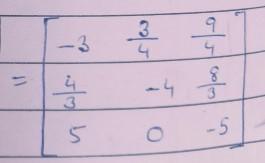 -3 3/4 9/4
= 4/3 -4 8/3
5 0 -5